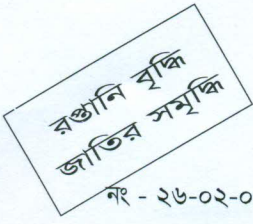 রপ্তানি বৃদ্ধি
জাতির সমৃদ্ধি
নং - ২৬-০২-০